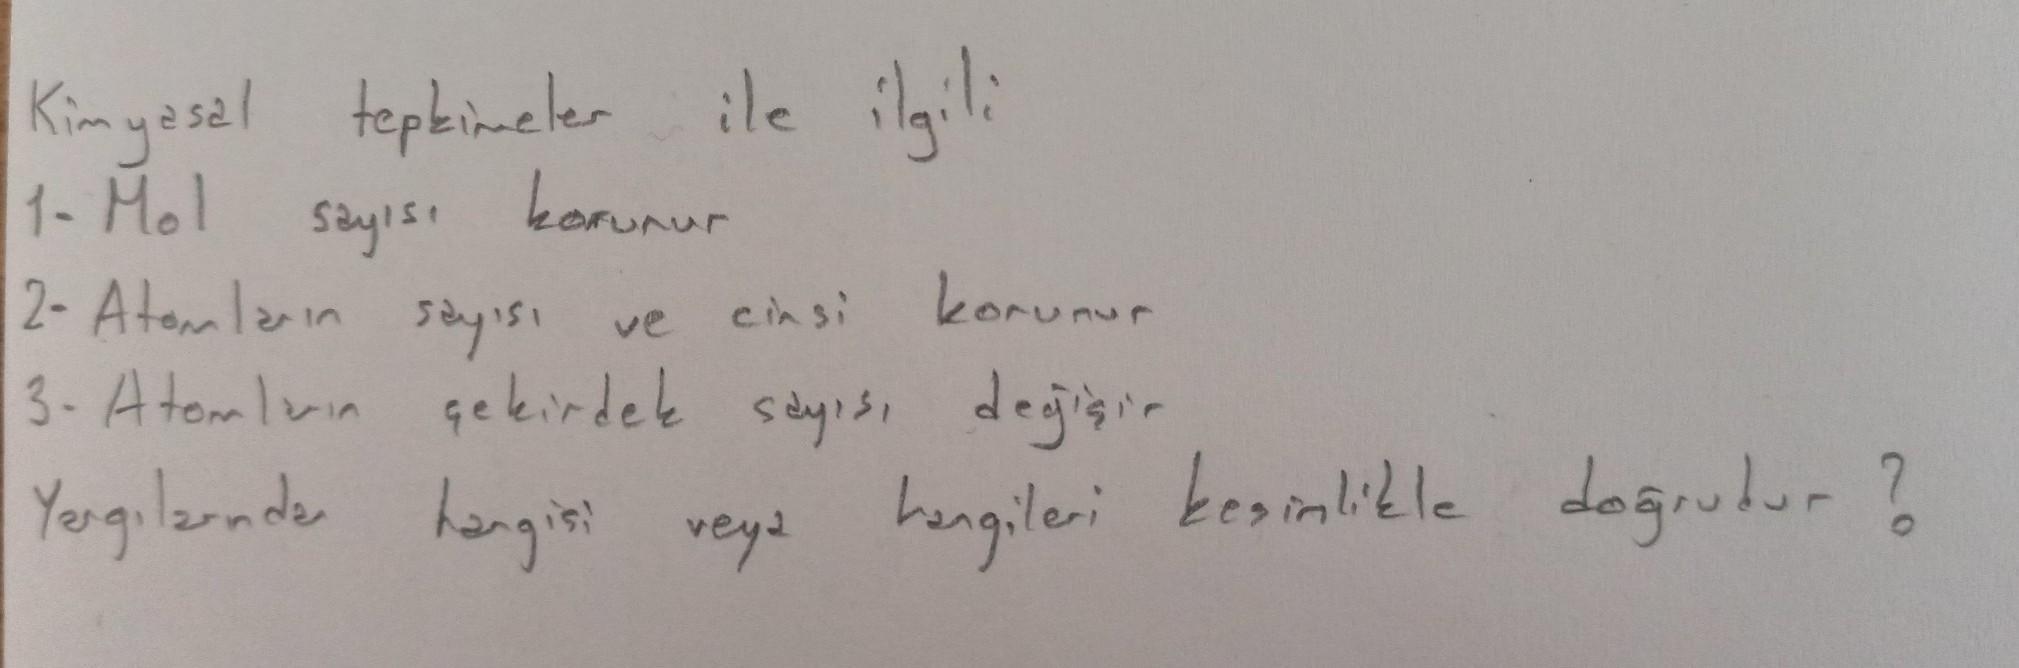 Kimyasal tepkimeler ile ilgili
1- Mol sayısı korunur
2- Atomların sayısı ve cinsi korunur
3- Atomların çekirdek sayısı değişir
Yargılarından hangisi veya hangileri kesinlikle doğrudur ?